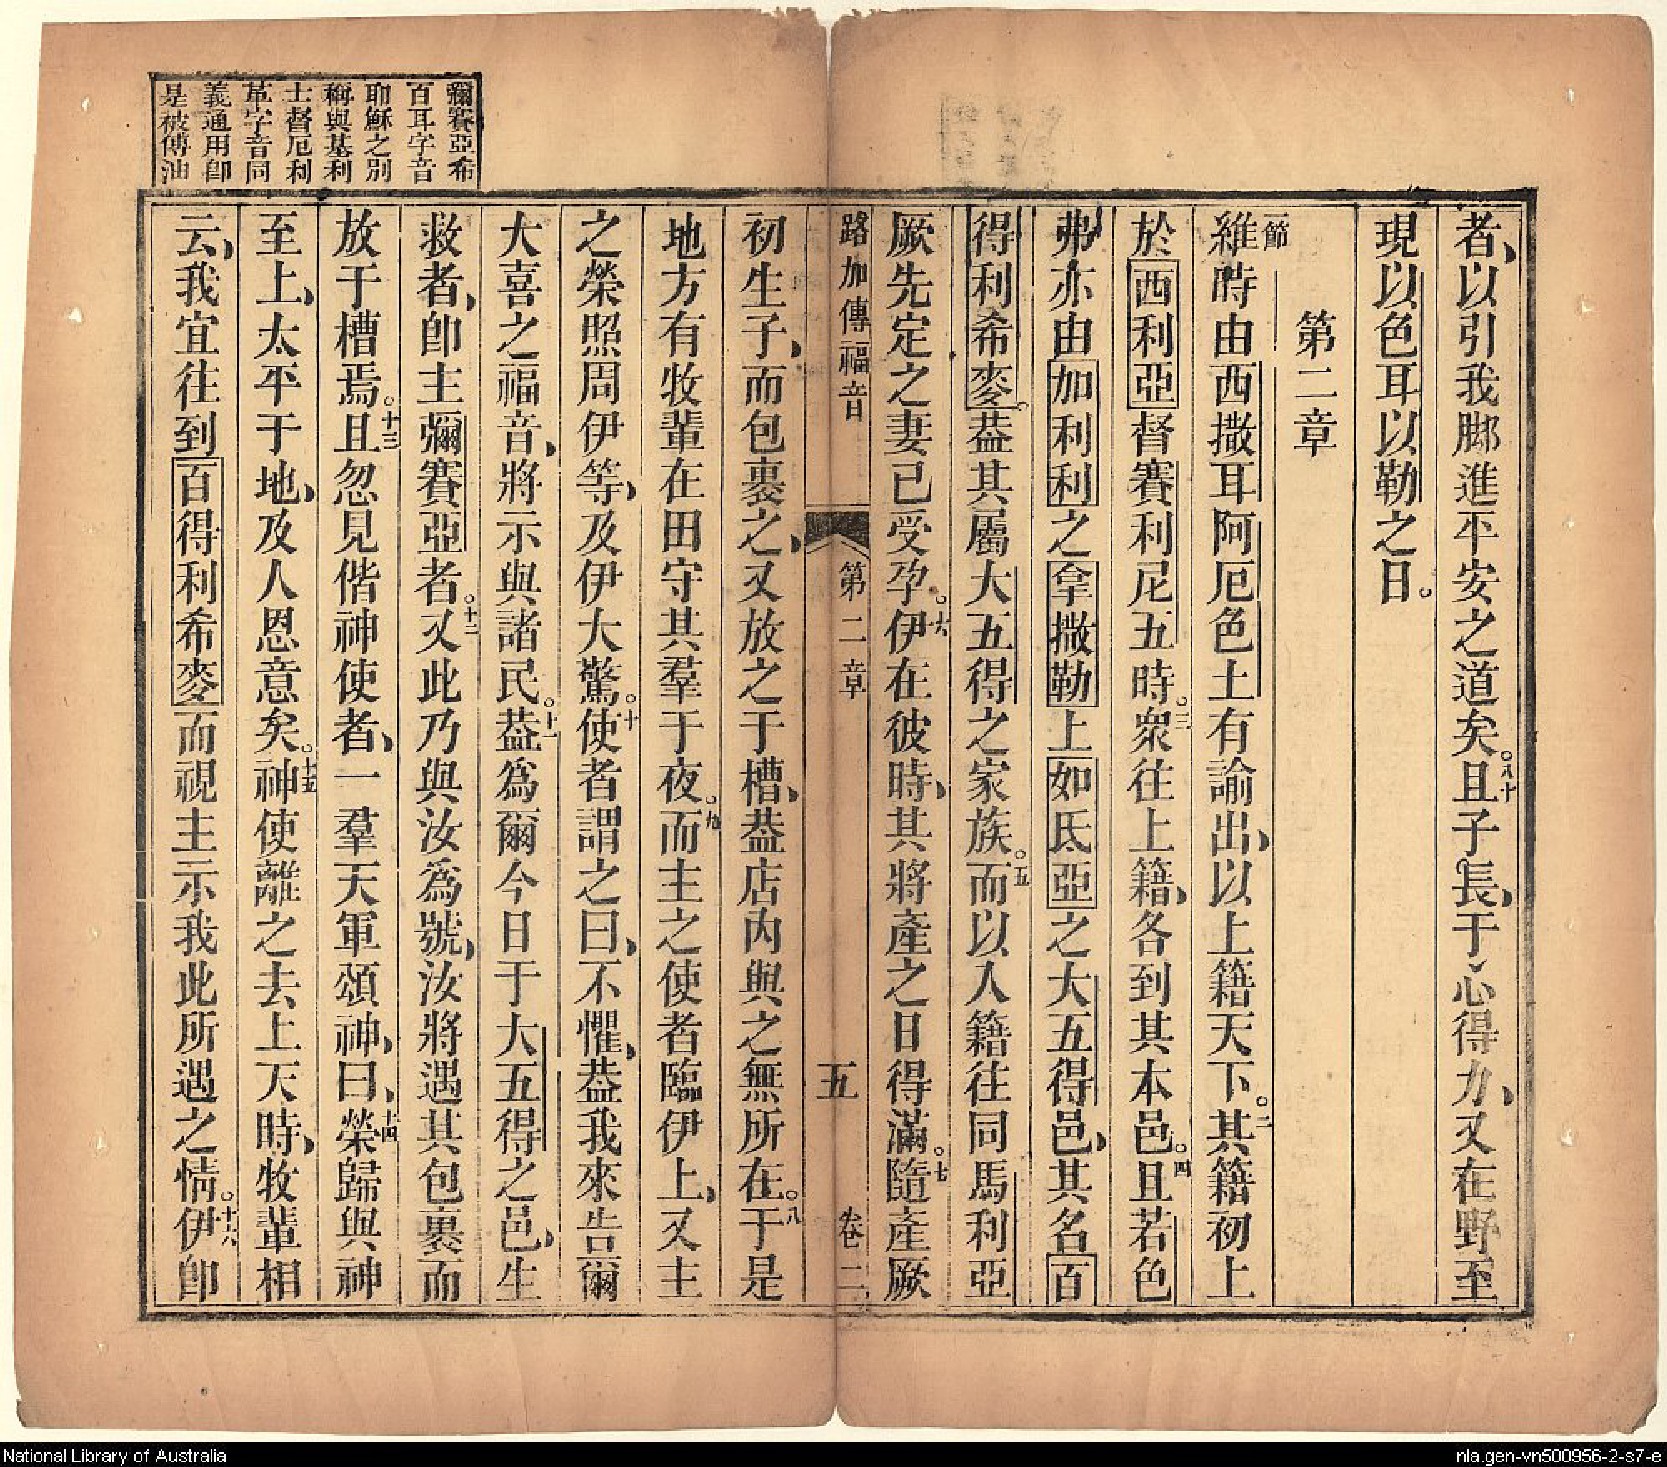 者、以引我脚進平安之道矣。八十且子長、于心得力、又在野至
現以色耳以勒之日。
第二章
節
維時由西撒耳阿厄色土有諭出、以上籍天下。二其籍初上
於西利亞督賽利尼五時。三衆往上籍、各到其本邑。四且若色
弗亦由加利利之拿撒勒上如氐亞之大五得邑、其名百
得利希麥。葢其屬大五得之家族。五而以入籍往同馬利亞
厥先定之妻已受孕。六伊在彼時、其將產之日得滿。七隨產厥
路加傳福音 第二章 五 卷二
初生子、而包裹之、又放之于槽、葢店內與之無所在。八于是
地方有牧輩在田守其羣于夜。九而主之使者臨伊上、又主
之榮照周伊等、及伊大驚。十使者謂之曰、不懼、葢我來告爾
大喜之福音、將示與諸民。十一葢爲爾今日于大五得之邑、生
救者、卽主彌賽亞者。十二又此乃與汝爲號、汝將遇其包裹而
放于槽焉。十三且忽見偕神使者、一羣天軍頌神、曰、十四榮歸與神
至上、太平于地、及人恩意矣。十五神使離之去上天時、牧輩相
云、我宜往到百得利希麥而視主示我此所遇之情。十六伊卽
彌賽亞希
百耳字音
耶穌之別
稱與基利
士督厄利
革字音同
義通用卽
是被傅油
National Library of Australia
nla.gen-vn500956-2-s7-e